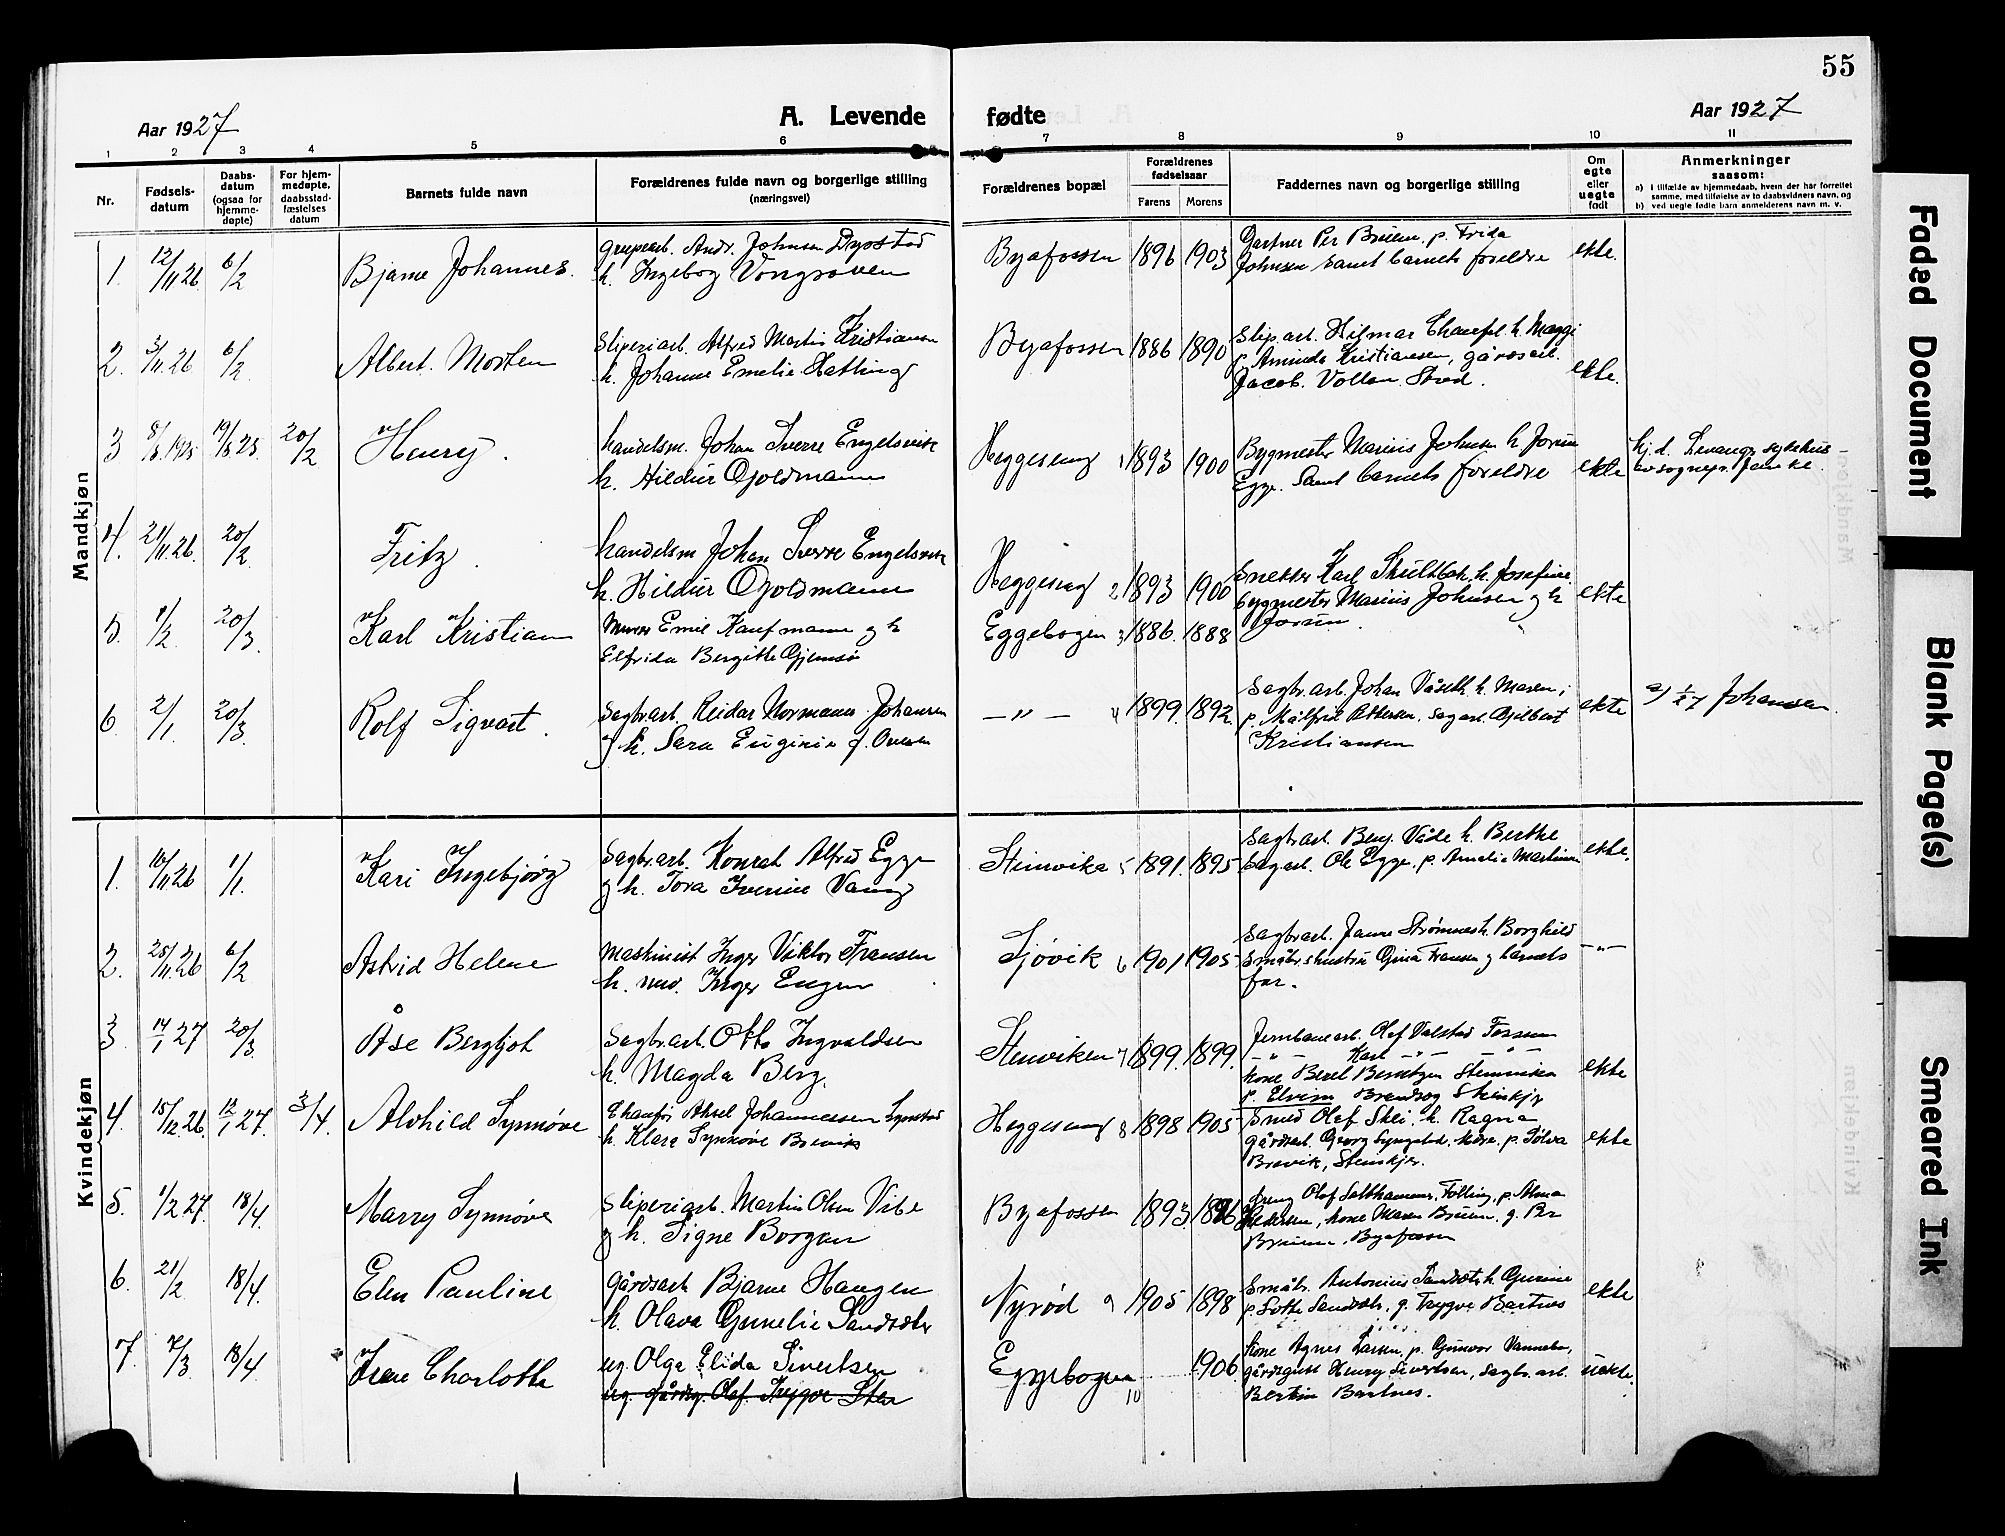 55
Aar 1927
A. Levende fødte
Aar 1927
1 2 3 4 5 6 7 8 9 10 11
Nr.
Fødsels-
datum
Daabs-
datum
(ogsaa for
hjemme-
døpte)
For hjem-
medøpte,
daabsstad-
fæstelses
datum
Barnets fulde navn
Forældrenes fulde navn og borgerlige stilling
(næringsvei)
Forældrenes bopæl
Forældrenes
fødselsaar
Farens Morens
Faddernes navn og borgerlige stilling
Om
egte
eller
uegte
født
Anmerkninger
saasom:
a) i tilfælde av hjemmedaab, hvem der har forrettet
samme, med tilføielse av to daabsvidners navn, og
b) ved uegte fødte barn anmelderens navn m. v.
Mandkjøn
1. 12/11 26 6/2 Bjarne Johannes. Andr. Johnsen Dyrstad Byafossen 1896 1903 Gartner Per Bruem, p. Frida ekte.
h. Ingeborg Vongraven Johnsen samt barnets foreldre
2. 3/11 26 6/2 Albert Morten Sliperiarb. Alfred Martin Kristiansen Byafossen 1886 1890 Slip.arb. Hilmar h. Maggi
h. Johanne Emelie Hatling p. Aminda Kristiansen, gårdsarb.
Jacob Vollan Strøed. ekte.
3 8/8 1925 19/8 25. 20/2 Henry. handelsm. Johan Sverre Engelsvik Heggeseng 1 1893 1900 Bygmester Marius Johnsen h. Jorun ekte hj.d. Levanger sykehus
h. Hildur Gjoldmann Egge. Samt barnets foreldre av sognepr.
4. 21/11 26. 20/2. Fritz. handelsm Johan Sverre Engelsvik Heggeseng 2 1893 1900 Snekker Karl h. Josefine ekte
h. Hildur Gjoldmann bygmester Marius Johnsen og h
Jorun.
5. 1/2 20/3. Karl Kristian Murer Emil Kaufmann og h Eggebogen 3 1886. 1888
Elfrida Bergitte Gjemsø
6. 2/1. 20/3. Rolf Sigvart. Sagbr.arb. Reidar Normann Johansen — " — 4 1899. 1892. Sagbr.arb. Johan Våseth h. Maren; ekte Johansen.
og h. Sara Euginie f. Ovesen p. Målfrid Pettersen, sagarb. Gjilbert
Kristiansen
Kvindekjøn
1. 10/11 26 1/1. Kari Ingebjørg Sagbr.arb. Konrad Alfred Egge Steinvika 5 1891. 1895 Sagbr.arb. Berg. Våde h. Berthe ekte.
og h. Tora Iverine Vang Sagarb. Ole Egge, p. Amalie Martinsen
2. 25/11 26 6/2 Astrid Helene Maskinist Inger Viktor Fransen Sjøvik 6 1901 1905 Sagbr.arb. Janne Strømnes h. Borghild — " —
h. Inger Eugen Småbr.shustru Gina Fransen og barnets
far.
3 14/1 27 20/3. Åse Bergljot Sagbr.arb. Otto Ingvaldsen Stenviken 7 1899. 1899. Jernbanearb. Olaf Valstad Fossum
h. Magda Berg. — " — Karl — " — — " —
kone Beret Berntzen Stenviken ekte
p. Elvine Steinkjer
4. 15/12 26. 12/1 27. 3/4. Alvhild Synnøve Chauför Aksel Johannessen Heggeseng 8 1898 1905 Smed Olaf Skei, h. Ragna
h. Klara Synnøve Brevik gårdsarb. Georg p. Sølva ekte
Brevik, Steinkjer.
5. 1/2 27. 18/4. Marry Synnøve Sliperiarb. Martin Olsen Vibe Byafossen 1893. 1896 Olaf Salthammer, Følling, p. Alma
og h. Signe Borgan Pedersen, kone Maren Bruem, g. Per
Bruem, Byafossen
6. 21/2 18/4. Elen Pauline Gårdsarb Bjarne Haugen Nyrød 9 1905 1898 Småbr. Antonius Sandsets h. Gunine ekte
h. Olava Gunelie Sandseter p. Lotte Sandseter, g. Trygve Bartnes
7. 7/3 18/4 Irene Charlotte ug. Olga Elida Sivertsen Eggebogen 10 1906 Kone Agnes Larsen, p. Gunvor uekte.
ug. gårdsg. Olaf Trygve Sten gårdsgutt Henry Sivertsen, Sagbr.arb.
Bertin Bartnes.
Faded Document
Blank Page(s)
Smeared Ink